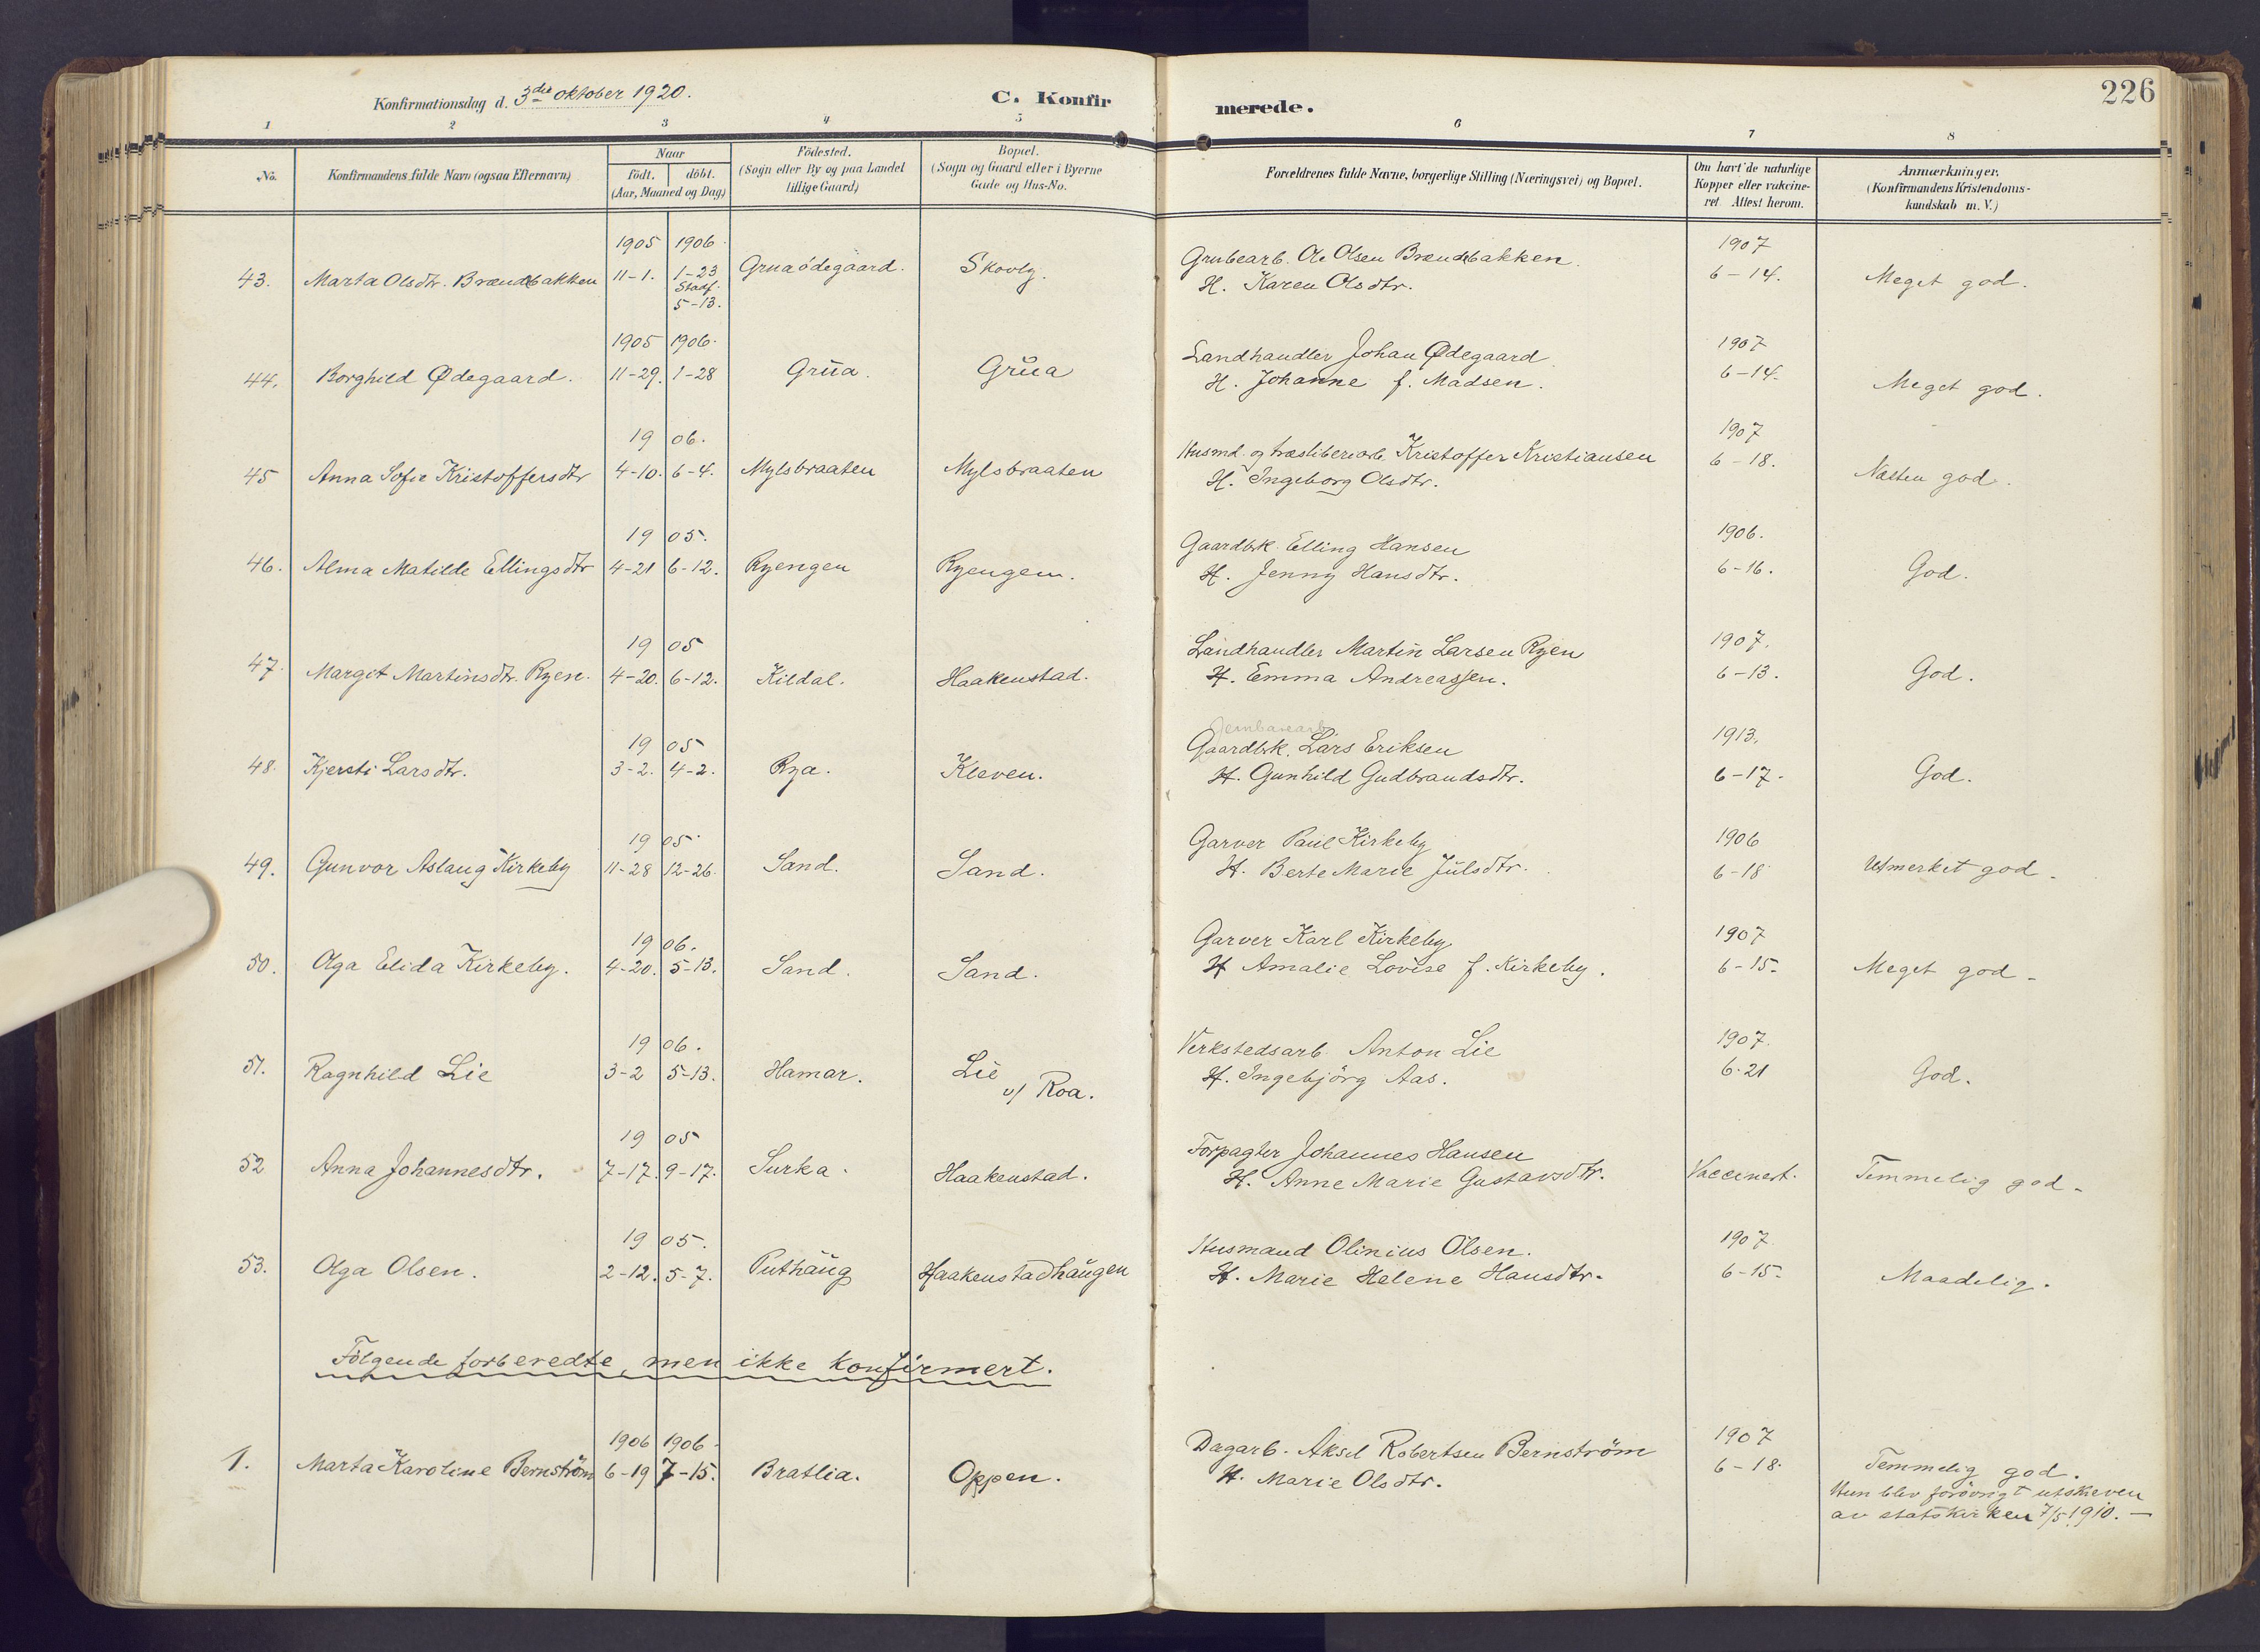 226
Konfirmationsdag d. 3die oktober 1920.
C. Konfir
merede.
1 2 3 4 5 6 7 8
No.
Konfirmandens fulde Navn (ogsaa Efternavn)
Naar
födt. döbt.
(Aar, Maaned og Dag)
Födested.
(Sogn eller By og paa Landet
tillige Gaard)
Bopæl.
(Sogn og Gaard eller i Byerne
Gade og Hus-No.
Forældrenes fulde Navne, borgerlige Stilling (Næringsvei) og Bopæl.
Om havt de naturlige
Kopper eller vakcine-
ret Attest herom.
Anmærkninger.
(Konfirmandens Kristendoms-
kundskab m. V.)
1905 1906. Grubearb. Ole Olsen Brændbakken. 1907
43. Marta Olsdtr. Brændbakken 11-1. 1-23 Gruaödegaard. Skovly. H. Karen Olsdtr. 6-14. Meget god.
Stadf.
5-13.
1905 1906. Landhandler Johan Ødegaard 1907
44. Borghild Ødegaard. 11-29. 1-28 Grua. Grua H. Johanne f. Madsen. 6-14. Meget god.
19 06. Husmd. og træsliberiarb. Kristoffer Kristiansen 1907
45 Anna Sofie Kristoffersdtr 4-10. 6-4. Mylsbraaten Mylsbraaten H. Ingeborg Olsdtr. 6-18. Næsten god.
19 05. Gaardbk. Elling Hansen 1906.
46. Alma Matilde Ellingsdtr 4-21 6-12. Ryengen Ryengen. H. Jenny Hansdtr. 6-16. God.
19 05 Landhandler Martin Larsen Ryen 1907.
47. Margit Martinsdtr. Ryen. 4-20. 6-12. Kildal. Haakenstad. H. Emma Andreassen. 6-13. God.
Jernbanearb
19 05 Gaardbk. Lars Eriksen 1913.
48. Kjersti Larsdtr. 3-2. 4-2. Rya. Kleven. H. Gunhild Gudbrandsdtr. 6-17. God.
19 05. Garver Paul Kirkeby 1906
49. Gunvor Aslaug Kirkeby 11-28 12-26. Sand. Sand. H. Berte Marie Julsdtr. 6-18 Utmerket god.
19 06. Garver Karl Kirkeby 1907
50. Olga Elida Kirkeby. 4-20. 5-13. Sand. Sand. H Amalie Lovise f. Kirkeby. 6-15. Meget god.
19 06. Verkstedsarb. Anton Lie 1907.
51. Ragnhild Lie 3-2 5-13. Hamar. Lie v/ Roa. H. Ingebjörg Aas. 6-21 God.
19 05 Forpagter Johannes Hansen
52 Anna Johannesdtr. 7-17. 9-17. Surka. Haakenstad. H. Anne Marie Gustavsdtr. Vaccinert. Temmelig god.
19 05. Husmand Olinius Olsen. 1907.
53. Olga Olsen. 2-12. 5-7. Puthaug Haakenstadhaugen H. Marie Helene Hansdtr. 6-15. Maadelig.
Fölgende forberedte, men ikke konfirmert.
1906 1906. Dagarb. Aksel Robertsen Bernström 1907
1. Marta Karoline Bernström 6-19 7-15. Bratlia. Oppen. H. Marie Olsdtr. 6-18. Temmelig god.
Hun blev forövrigt utskreven
av statskirken 7/5 1910. —